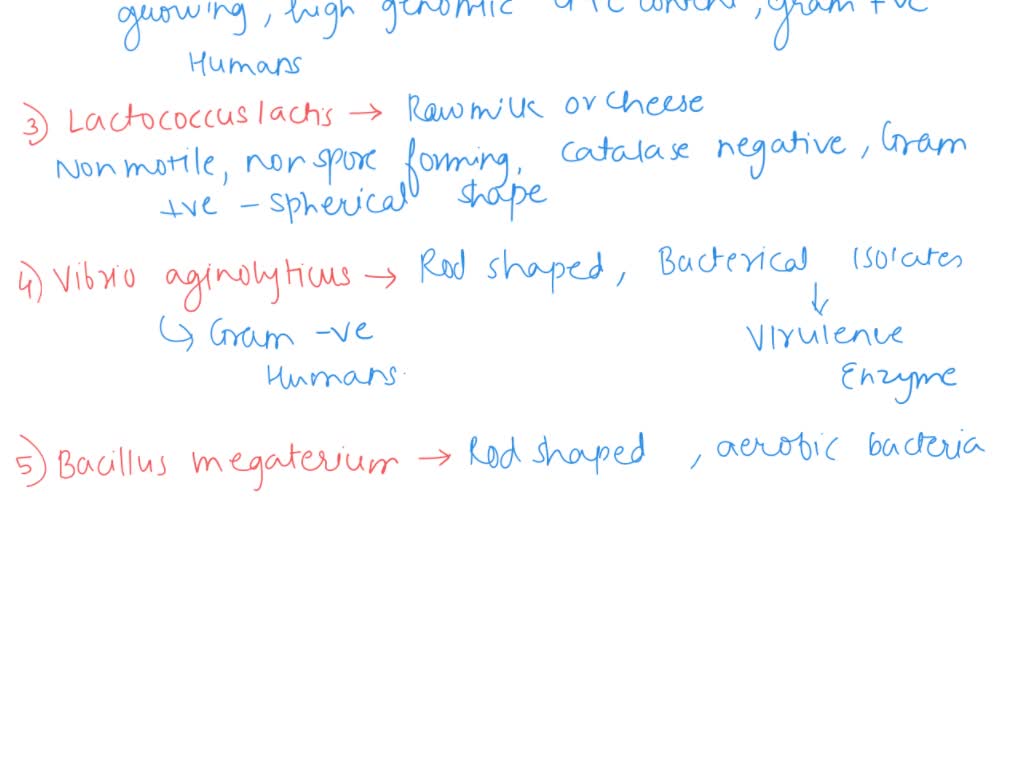 growing, high genomic G+C content, gram +ve
Humans
3) Lactococcus lactis → Raw milk or cheese
Non motile, non spore forming, catalase negative, Gram
+ve - spherical shape
4) Vibrio aginolyticus → Rod shaped, Bacterical Isolates
↳ Gram -ve
↓
Virulence
Humans
Enzyme
5) Bacillus megaterium → Rod shaped, aerobic bacteria